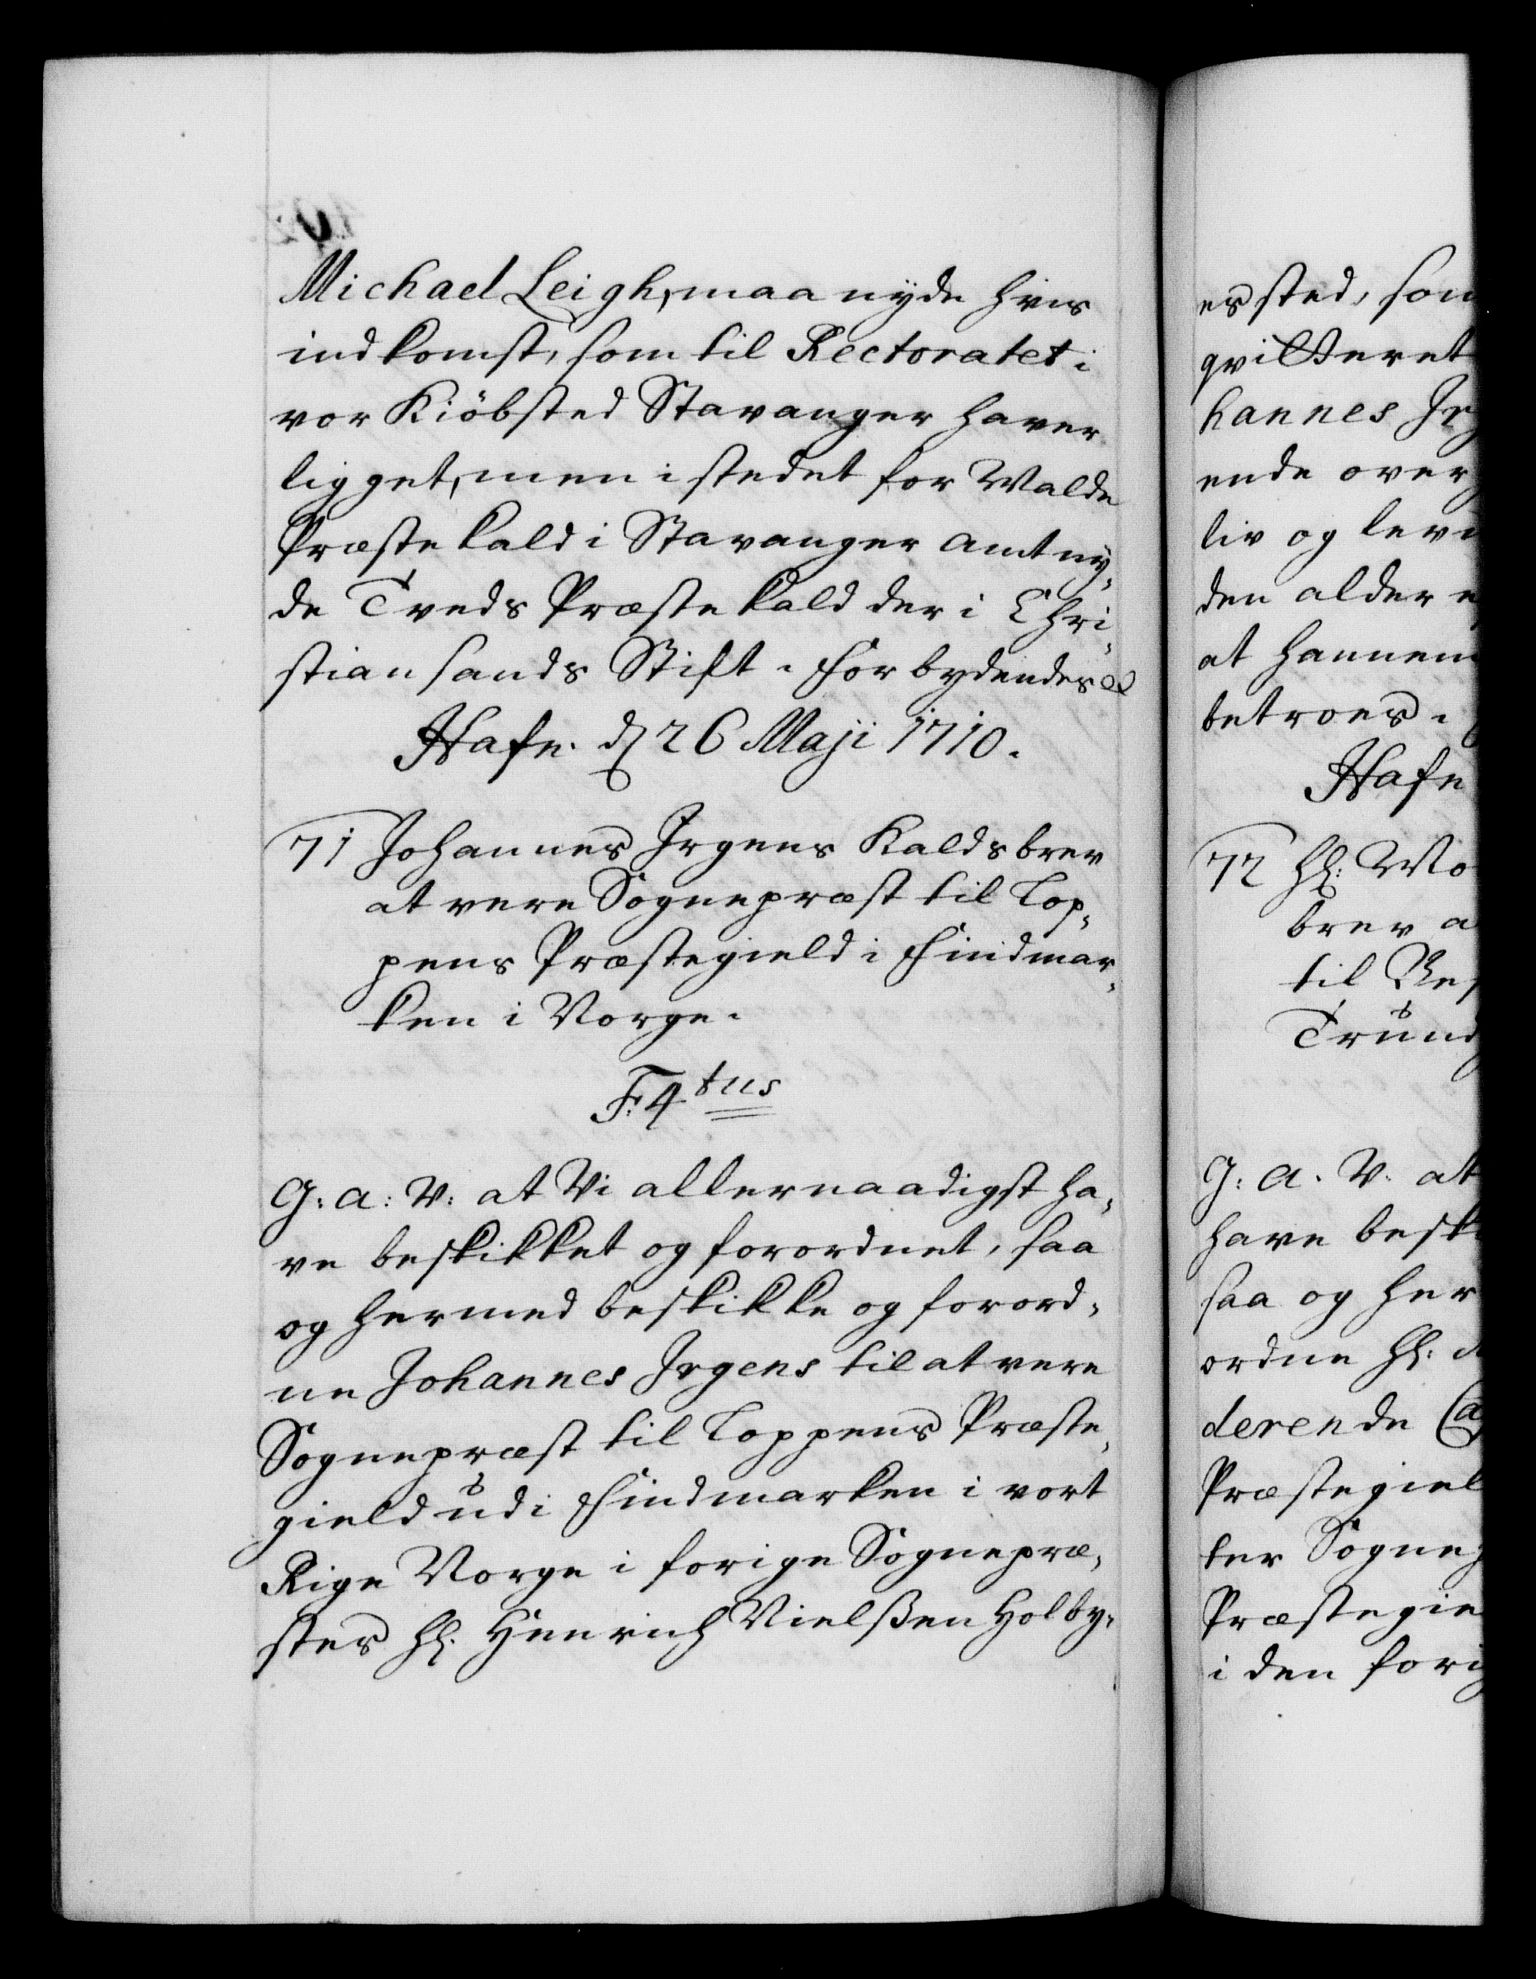 Michael Leigh, maa nyde hvis
indkomst, som til Rectoratet i
vor Kiöbsted Stavanger haver
ligget, men i stedet for Walde
Præstekald i Stavanger amt ny-
de Tveds Præstekald der i Chri-
stiansands Stift. Forbydendes
Hafn. d 26 Maji 1710.
71 Johannes Irgens Kaldsbrev
at vere Sognepræst til Lop-
pens Præstegield i Findmar-
ken i Norge.
F: 4tus
G: a: V: at Vi allernaadigst ha-
ve beskikket og forordnet, saa
og hermed beskikke og forord-
ne Johannes Irgens til at vere
Sognepræst til Loppens Præste-
gield udi Findmarken i vort
Rige Norge i forige Sognepræ-
stes Hr. Henrich Nielßen Holby-
es sted, som
qvitteret
hannes Ir
ende over
liv og lev
den alder
at hannem
betroes.
Hafn
72 Hr: Mo
brev a
til
Trund
G: a. V. at
have besk
saa og her
ordne Hr:
derende Ca
Præstegiel
ter Sogne
Præstegie
i den fori